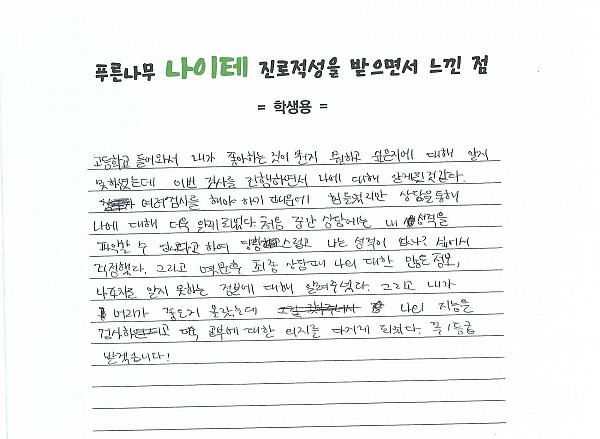 푸른나무 나이테 진로적성을 받으면서 느낀 점
= 학생용 =
고등학교 들어와서 내가 좋아하는 것이 뭔지 뭘하고 싶은지에 대해 알지
못하였는데 이번 검사를 진행하면서 나에 대해 알게된것같다.
여러검사를 해야 하기 때문에 힘들었지만 상담을 통해
나에 대해 더욱 알게 되었다. 처음 중간 상담에는 내 성격을
파악할 수 없다고 하여 당황스럽고 나는 성격이 없나? 싶어서
걱정했다. 그리고 최종 상담때 나의 대한 많은 정보,
나조차도 알지 못하는 정보에 대해 알려주셨다. 그리고 내가
머리가 좋은지 몰랐는데 나의 지능을
검사하고 공부에 대한 의지를 다지게 되었다. 꼭 1등급
받겠습니다!